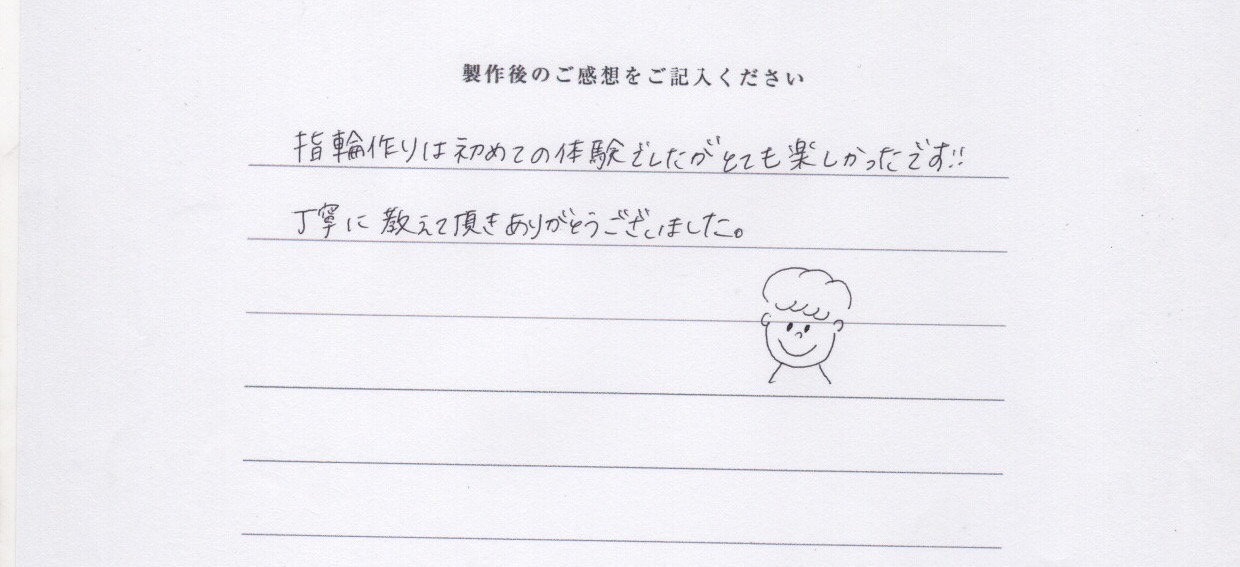 製作後のご感想をご記入ください
指輪作りは初めての体験でしたがとても楽しかったです!!
丁寧に教えて頂きありがとうございました。